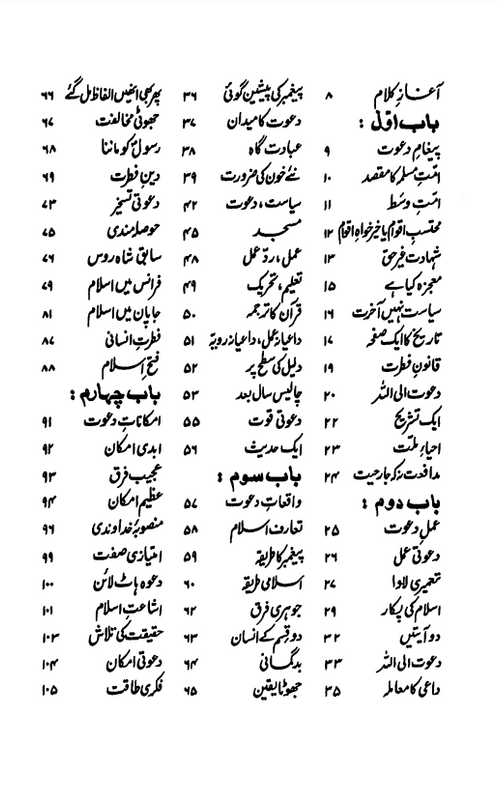 آغازِ کلام ۸
باب اول :
پیغامِ دعوت ۹
امتِ مسلمہ کا مقصد ۱۰
امتِ وسط ۱۱
محتسبِ اقوام یا خیر خواہِ اقوام ۱۲
شہادت غیر حق ۱۳
معجزہ کیا ہے ۱۵
سیاست نہیں آخرت ۱۶
تاریخ کا ایک صفحہ ۱۷
قانونِ فطرت ۱۹
دعوت الی اللہ ۲۰
ایک تشریح ۲۲
احیاءِ ملت ۲۳
مدافعت نہ کہ جارحیت ۲۴
باب دوم :
عملِ دعوت ۲۵
دعوتی عمل ۲۶
تعمیری لاوا ۲۷
اسلام کی پکار ۲۹
دو آیتیں ۳۲
دعوت الی اللہ ۳۳
داعی کا معاملہ ۳۵
پیغمبر کی پیشین گوئی ۳۶
دعوت کا میدان ۳۷
عبادت گاہ ۳۸
نئے خون کی ضرورت ۳۹
سیاست، دعوت ۴۲
مسجد ۴۵
عمل، ردِّ عمل ۴۸
تعلیم، تحریک ۴۹
قرآن کا ترجمہ ۵۰
داعیانہ عمل، داعیانہ رویہ ۵۱
دلیل کی سطح پر ۵۲
چالیس سال بعد ۵۳
دعوتی قوت ۵۵
ایک حدیث ۵۶
باب سوم :
واقعاتِ دعوت ۵۷
تعارفِ اسلام ۵۸
پیغمبر کا طریقہ ۵۹
اسلامی طریقہ ۶۰
جوہری فرق ۶۲
دو قسم کے انسان ۶۳
بدگمانی ۶۴
جھوٹا یقین ۶۵
پھر بھی انھیں الفاظ مل گئے ۶۶
جھوٹی مخالفت ۶۷
رسول کو ماننا ۶۸
دینِ فطرت ۶۹
دعوتی تسخیر ۷۳
حوصلہ مندی ۷۵
سابق شاہ روس ۷۶
فرانس میں اسلام ۷۹
جاپان میں اسلام ۸۱
فطرتِ انسانی ۸۷
فتحِ اسلام ۸۸
باب چہارم :
امکاناتِ دعوت ۹۱
ابدی امکان ۹۲
عجیب فرق ۹۳
عظیم امکان ۹۴
منصوبۂ خداوندی ۹۶
امتیازی صفت ۹۹
دعوہ ہاٹ لائن ۱۰۰
اشاعتِ اسلام ۱۰۱
حقیقت کی تلاش ۱۰۳
دعوتی امکان ۱۰۴
فکری طاقت ۱۰۵